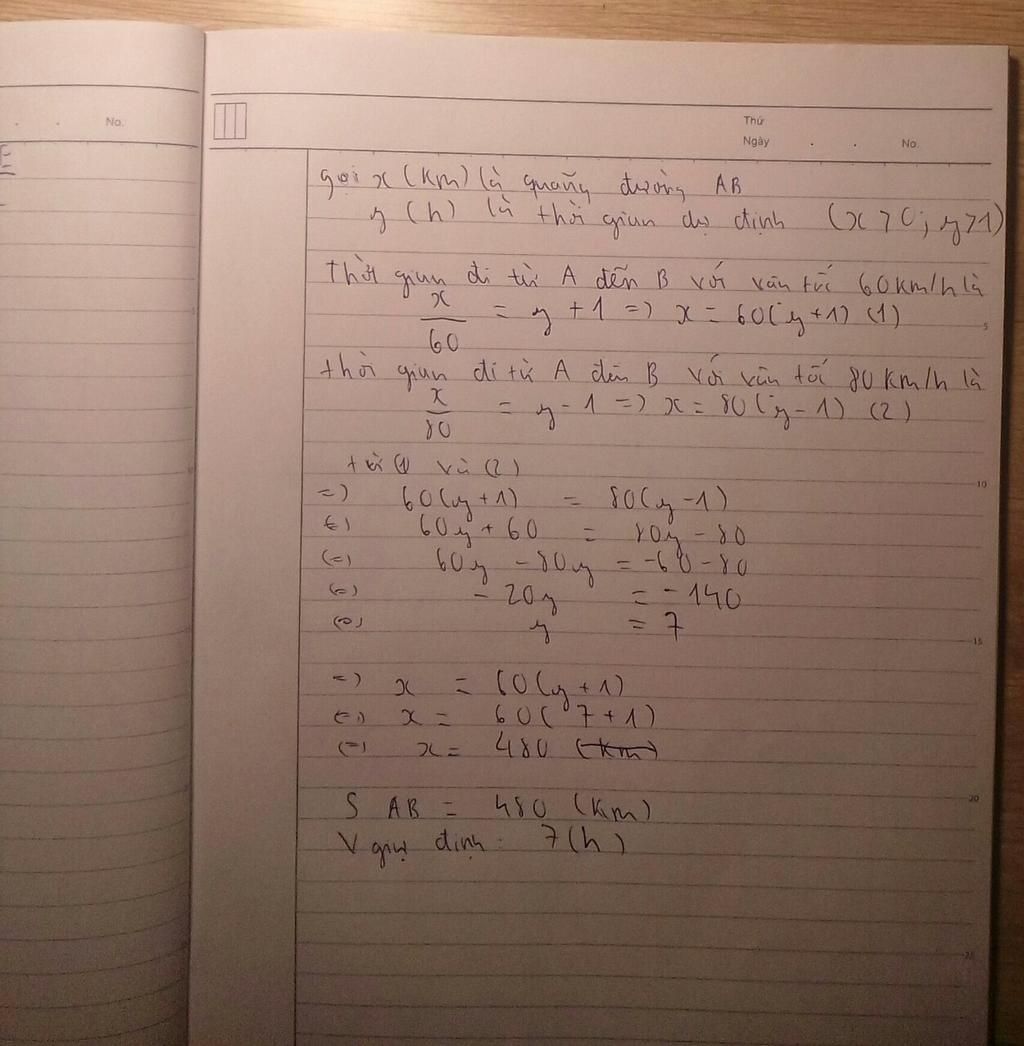 No.
Thứ
Ngày . . No.
gọi x (km) là quãng đường AB
y (h) là thời gian dự định (x > 0; y > 1)
Thời gian đi từ A đến B với vân tốc 60 km/h là
x/60 = y + 1 => x = 60(y+1) (1)
5
thời gian đi từ A đến B với vân tốc 80 km/h là
x/80 = y - 1 => x = 80(y-1) (2)
từ (1) và (2)
10
=> 60(y+1) = 80(y-1)
(=) 60y + 60 = 80y - 80
(=) 60y - 80y = -60 - 80
(=) - 20y = - 140
(=) y = 7
15
=> x = 60(y+1)
(=) x = 60(7+1)
(=) x = 480 (km)
20
S AB = 480 (km)
V định: 7 (h)
25